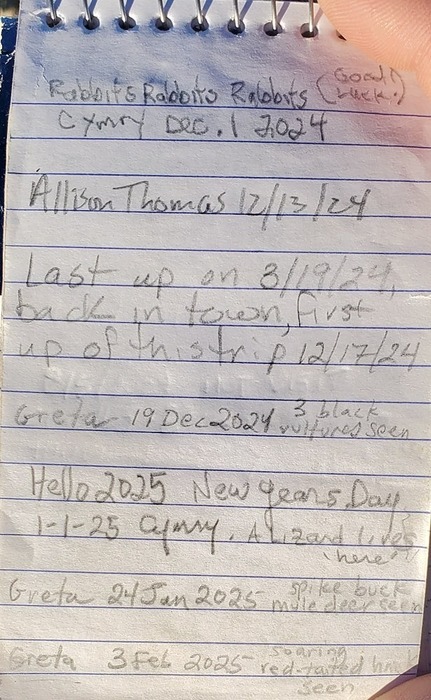 Rabbits Rabbits Rabbits (Good Luck!)
Cymry Dec. 1 2024
Allison Thomas 12/13/24
Last up on 3/19/24,
back in town, first
up of this trip 12/17/24
Greta 19 Dec 2024 3 black
vultures seen
Hello 2025 New Years Day
1-1-25 Cymry. A Lizard lives
"here"
Greta 24 Jan 2025 spike buck
mule deer seen
Greta 3 Feb 2025 soaring
red-tailed hawk
seen